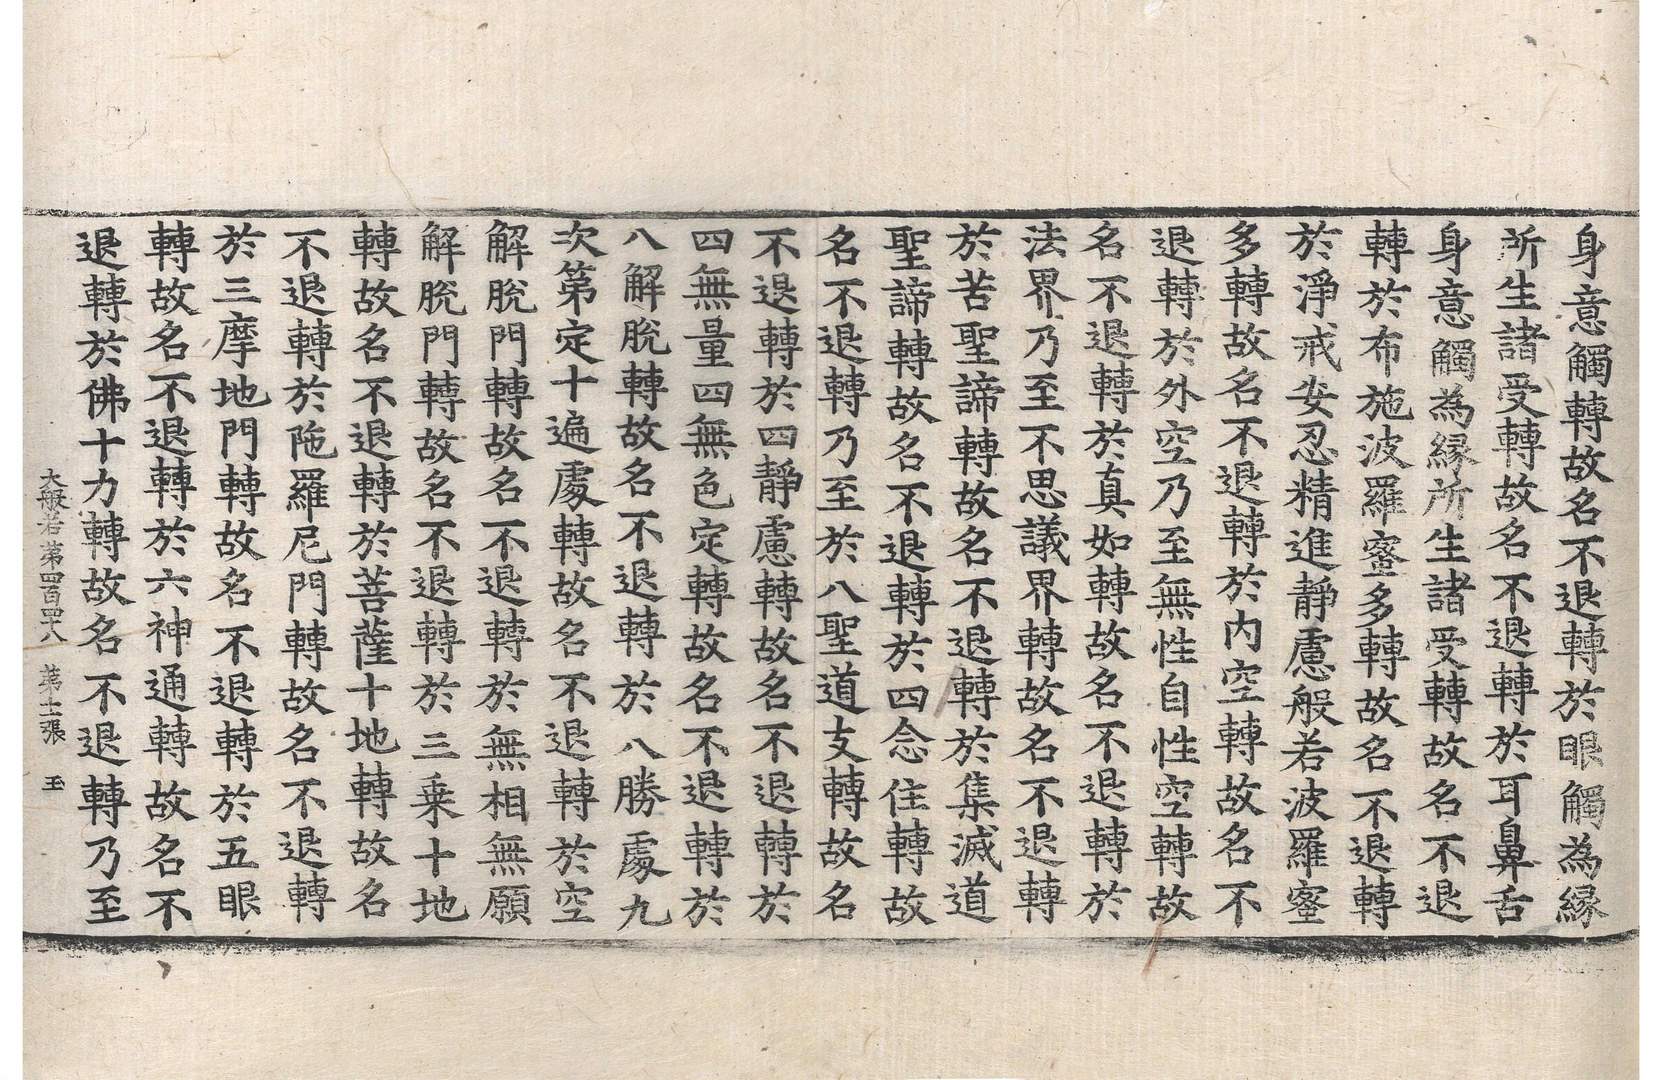 身意觸轉故名不退轉於眼觸為縁
所生諸受轉故名不退轉於耳鼻舌
身意觸為縁所生諸受轉故名不退
轉於布施波羅蜜多轉故名不退轉
於淨戒安忍精進靜慮般若波羅蜜
多轉故名不退轉於内空轉故名不
退轉於外空乃至無性自性空轉故
名不退轉於真如轉故名不退轉於
法界乃至不思議界轉故名不退轉
於苦聖諦轉故名不退轉於集滅道
聖諦轉故名不退轉於四念住轉故
名不退轉乃至於八聖道支轉故名
不退轉於四靜慮轉故名不退轉於
四無量四無色定轉故名不退轉於
八解脫轉故名不退轉於八勝處九
次第定十遍處轉故名不退轉於空
解脫門轉故名不退轉於無相無願
解脫門轉故名不退轉於三乗十地
轉故名不退轉於菩薩十地轉故名
不退轉於陁羅尼門轉故名不退轉
於三摩地門轉故名不退轉於五眼
轉故名不退轉於六神通轉故名不
退轉於佛十力轉故名不退轉乃至
大般若第四百四十八 第十一張 玉